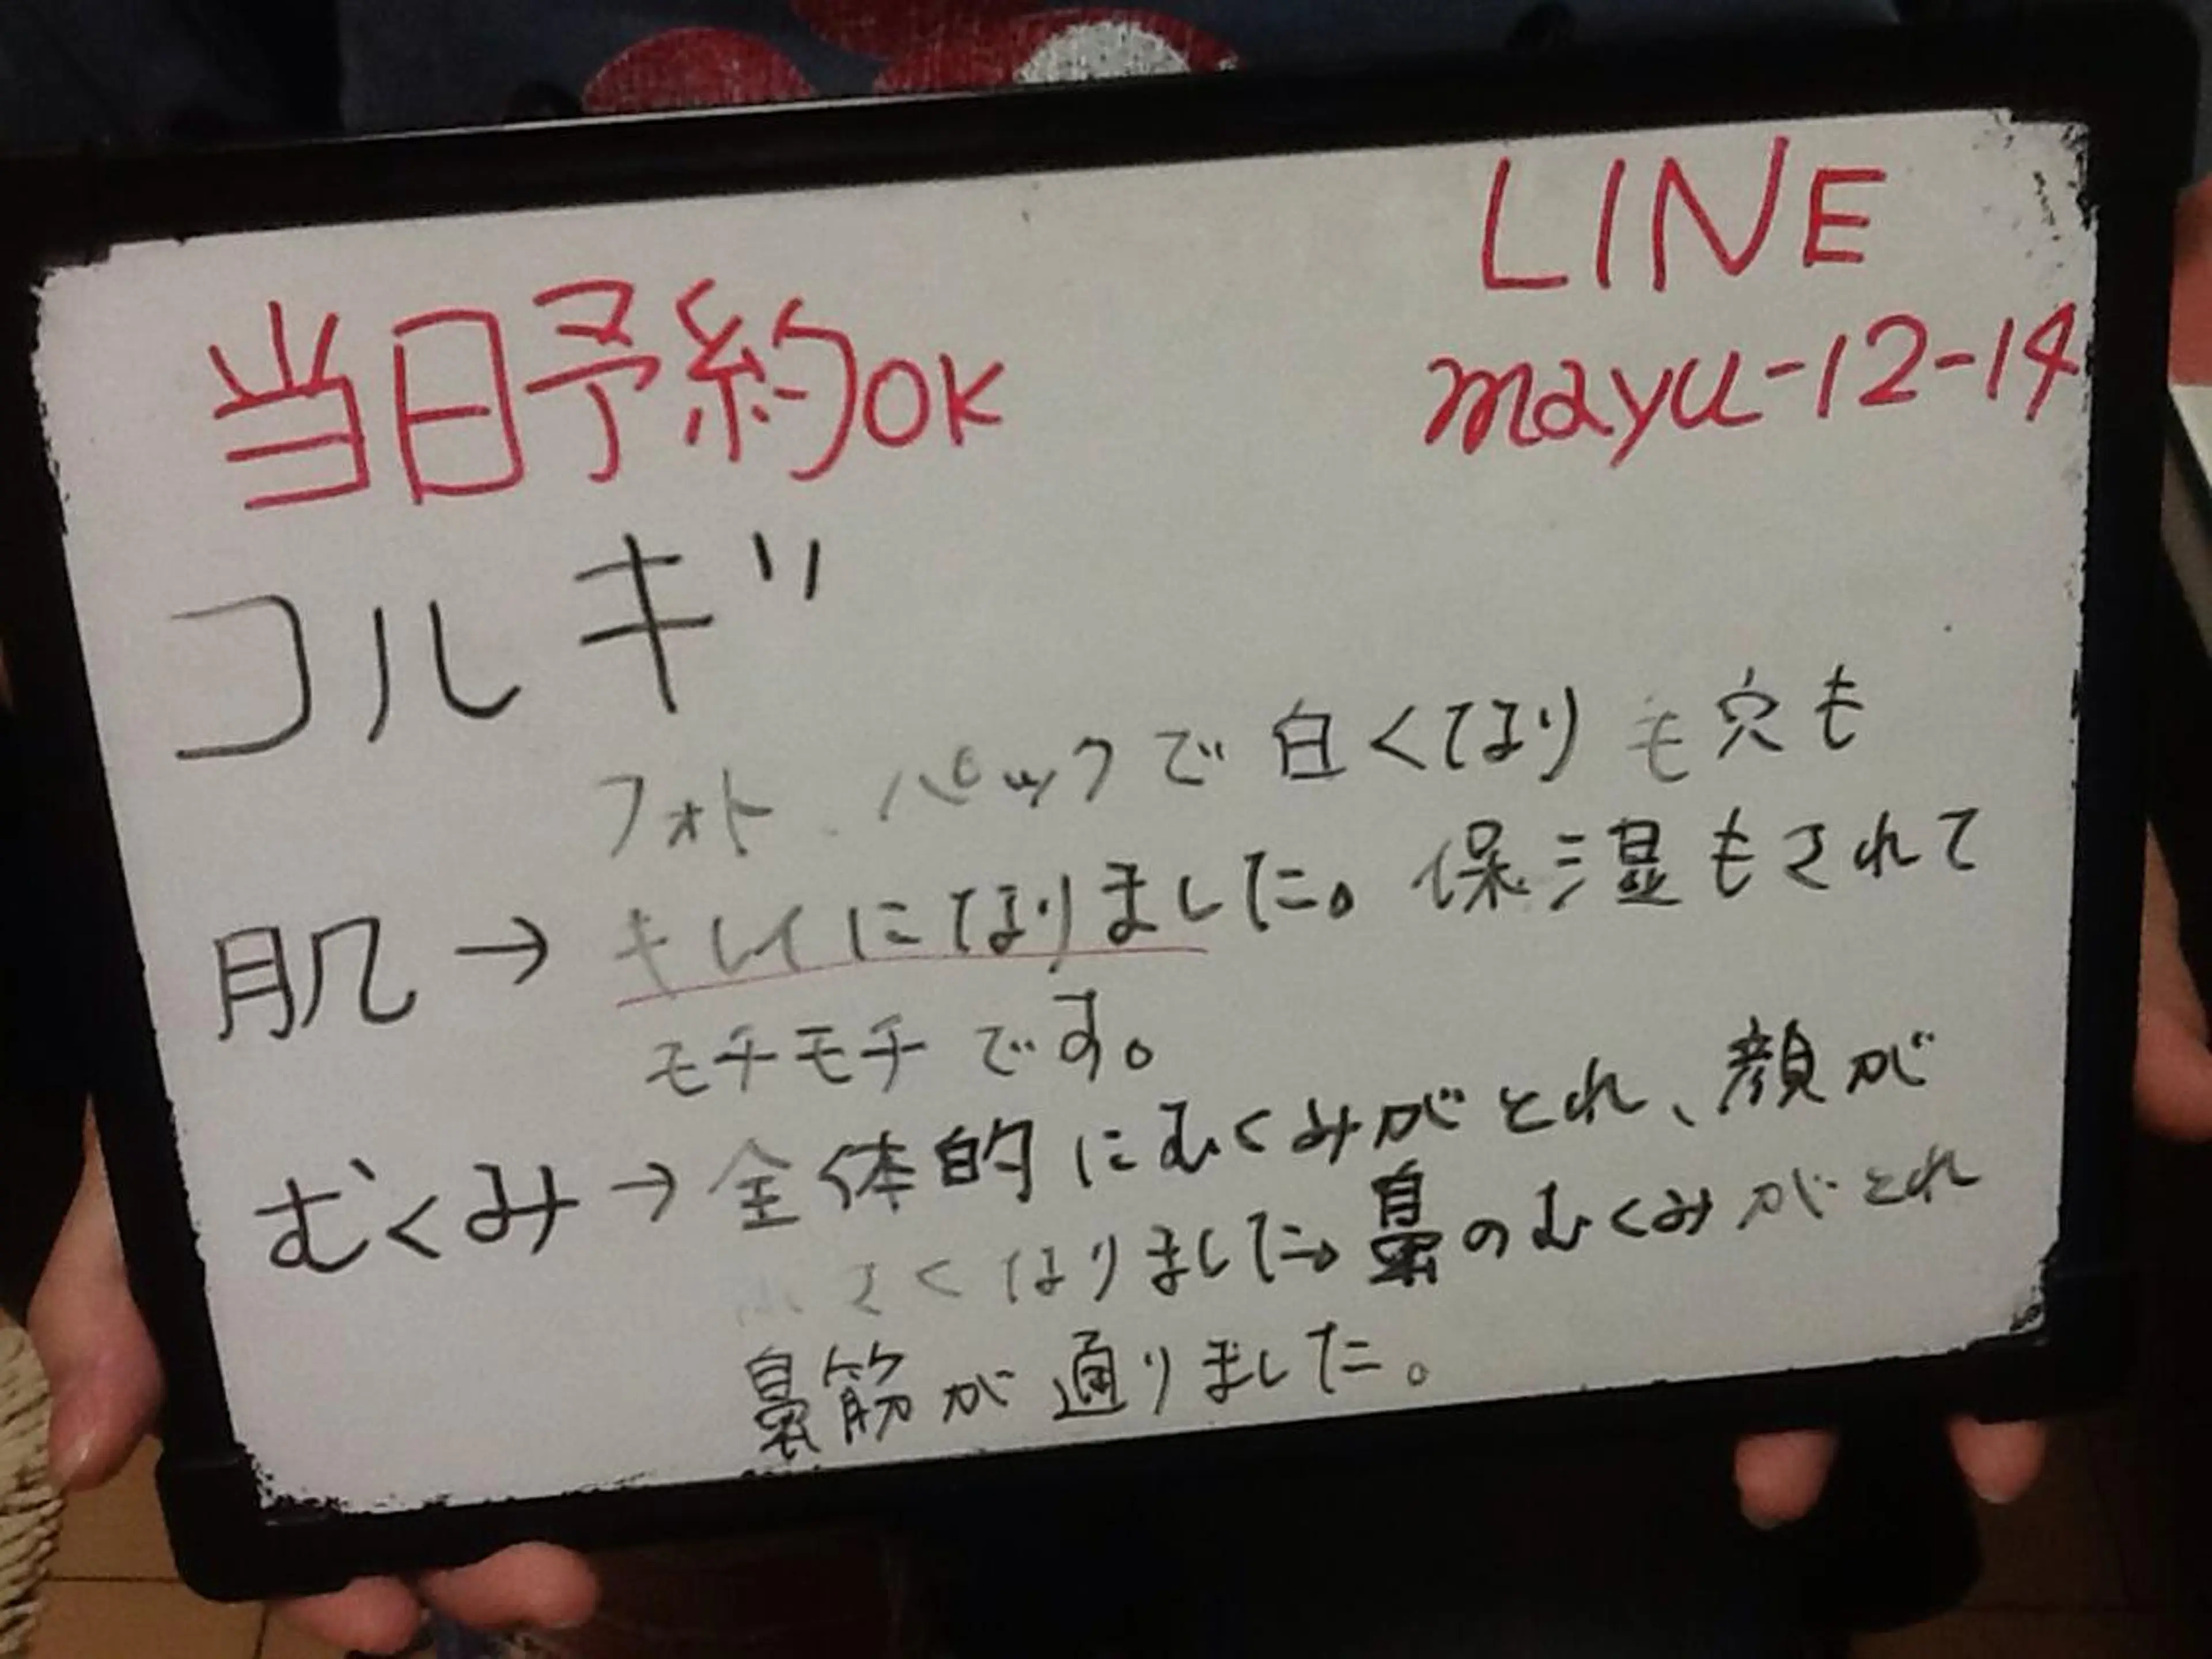 LINE
当日予約OK
mayu-12-14
コルギ
フォト、パックで白くなり毛穴も
肌→キレイになりました。保湿もされて
モチモチです。
むくみ→全体的にむくみがとれ、顔が
小さくなりました。鼻のむくみがとれ
鼻筋が通りました。